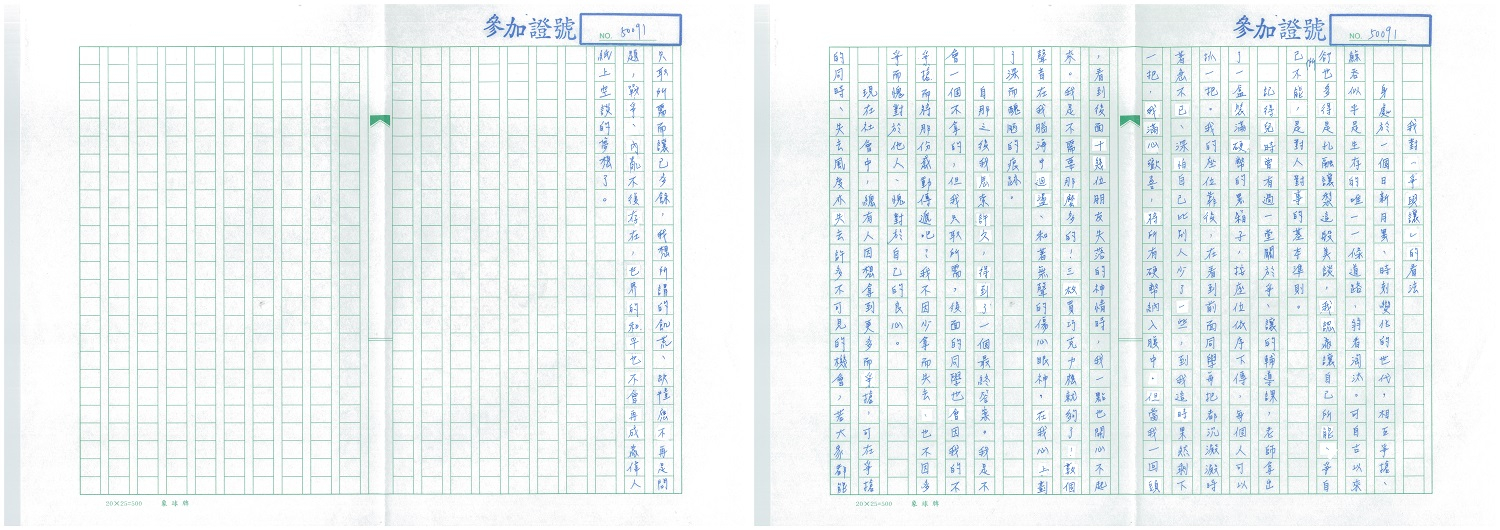 參加證號
NO. 50091
我對「爭與讓」的看法
身處於一個日新月異、時刻變化的世代,相互爭搶、
餘者似乎是生存的唯一一條道路、 者淘汰。可自古以來,
卻也多得是孔融讓梨這般美談,我認為讓自己所能、爭自
己所不能,是對人對事的基本準則。
記得兒時曾有過一堂關於爭、讓的輔導課,老師拿出
了一盒裝滿硬幣的黑箱子,按座位依序下傳,每個人可以
抓一把。我的座位靠後,在看到前面同學每把都沉澱澱時
著急不已、深怕自己比別人少了一些,到我這時果然剩下
一把,我滿心歡喜,將所有硬幣納入 中。但當我一回頭
,看到後面十幾位朋友失落的神情時,我一點也開心不起
來。我是不需要那麼多的!三枚買巧克力機就夠了!數個
聲音在我腦海中迴盪、和著無聲的傷心眼神。在我心上劃
了深而醜陋的痕跡。
自那之後我思索許久,得到了一個最終答案。我是不
會一個不拿的,但我只取所需,後面的同學也會因我的不
爭搶而將那份 傳遞吧?我不因少拿而失去、也不因多
爭而愧對於他人、愧對於自己的良心。
現在社會中,總有人因想拿到更多而爭搶,可在爭搶
的同時、失去風度亦失去許多不可見的機會,若大家都能
20×25=500
參加證號
NO. 50091
只取所需而讓己多餘,我想所謂的飢荒、缺 不再是問
題,戰爭、內亂不復存在,世界的和平也不會再成為偉人
紙上空談的夢想了。
20×25=500